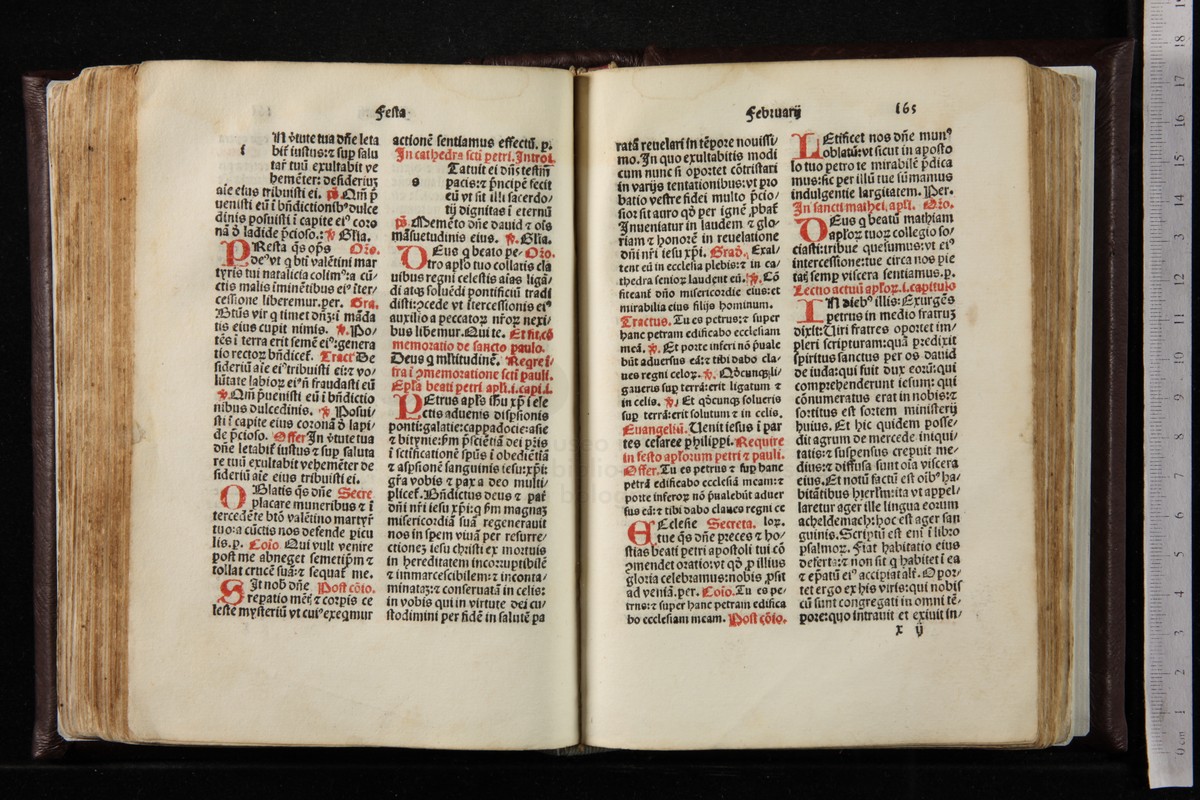 Festa
N v̄tute tua dn̄e leta
i
bit̄ iustus: ⁊ sup salu
tar̄ tuū exultabit ve
hemēter: desideriuʒ
aīe eius tribuisti ei. ps̄. Qm̄ p̄
uenisti eū ī bn̄dictionibꝰ dulce
dinis posuisti ī capite eiꝰ coro
nā ð lapide p̄cioso.: ℣. Gl̄ia.
PResta qs̄ op̄s Or̄o.
deꝰ vt q bt̄i valētini mar
tyris tui natalicia colimꝰ: a cū⸗
ctis malis īminētibus eiꝰ īter⸗
cessione liberemur. per. Gra.
Bt̄us vir q timet dn̄ʒ: ī māda
tis eius cupit nimis. ℣. Po⸗
tēs ī terra erit semē eiꝰ: genera
tio rectoꝝ bn̄dicet̄. Tract̄ De
sideriū aīe eiꝰ tribuisti ei: ⁊ vo⸗
lūtate labioꝝ eiꝰ ñ fraudasti eū
℣. Qm̄ p̄uenisti eū ī bn̄dictio
nibus dulcedinis. ℣. Posui⸗
sti ī capite eius coronā ð lapi⸗
de p̄cioso. Offer̄ In v̄tute tua
dn̄e letabit̄ iustus ⁊ sup saluta
re tuū exultabit vehemēter de
sideriū aīe eius tribuisti ei.
OBlatis qs̄ dn̄e Secre
placare muneribus ⁊ ī
tercedēte bt̄o valētino martyr̄
tuo: a cūctis nos defende picu
lis. p. Cōio Qui vult venire
post me abneget semetip̄m ⁊
tollat crucē suā: ⁊ sequat̄ me.
SIt nob̄ dn̄e Post cōio.
reparatio mēt̄ ⁊ corpis ce
leste mysteriū vt cuiꝰ exeqmur
actionē sentiamus effectū. p.
In cathedra scti petri. Introi.
Tatuit ei dn̄s testm̄
s
pacis: ⁊ p̄ncipē fecit
eū vt sit illi sacerdo⸗
tij dignitas ī eternū
ps̄. Memēto dn̄e dauid ⁊ oīs
māsuetudinis eius. ℣. Gl̄ia.
DEus q beato pe⸗ Or̄o.
tro apl̄o tuo collatis cla
uibus regni celestis aīas ligā⸗
di atqꝫ soluēdi pontificiū tradi
disti: ꝯcede vt ītercessionis eiꝰ
auxilio a peccatoꝝ nr̄oꝝ nexi⸗
bus libemur. Qui te. Et fit cō
memoratio de sancto paulo.
Deus q ml̄titudinē. Reqre ī⸗
fra ī ꝯmemoratione scti pauli.
Epl̄a beati petri apl̄i. i. capi. i.
PEtrus apl̄s ih̄u xp̄i ele
ctis aduenis dispsionis
ponti: galatie: cappadocie: asie
⁊ bitynie: ẜm p̄sciētiā dei pr̄is
ī sctificationē spūs ī obediētiā
⁊ aspsionē sanguinis iesu: xp̄i:
gr̄a vobis ⁊ pax a deo multi⸗
plicet̄. Bn̄dictus deus ⁊ pat̄
dn̄i nr̄i iesu xp̄i: q ẜm magnaʒ
misericordiā suā regenerauit
nos in spem viuā per resurre⸗
ctioneʒ iesu christi ex mortuis
in hereditatem incorruptibilē
⁊ immarcescibilem: ⁊ inconta⸗
minataʒ: ⁊ conseruatā in celis:
in vobis qui in virtute dei cu⸗
stodimini per fidē in salutē pa
Februarij 165
ratā reuelari in tēpore nouissi⸗
mo. In quo exultabitis modi
cum nunc si oportet cōtristari
in varijs tentationibus: vt pro
batio vestre fidei multo p̄cio⸗
sior sit auro qð per ignē ꝓbat̄
Inueniatur in laudem ⁊ glo⸗
riam ⁊ honorē in reuelatione
dn̄i nr̄i iesu xp̄i. Grad̄. Exal⸗
tent eū in ecclesia plebis: ⁊ in ca⸗
thedra senioꝝ laudent eū. ℣. Cō
fiteant̄ dn̄o misericordie eius: et
mirabilia eius filijs hominum.
Tractus. Tu es petrus: ⁊ super
hanc petram edificabo ecclesiam
meā. ℣. Et porte inferi nō p̄uale
būt aduersus eā: ⁊ tibi dabo cla⸗
ues regni celoꝝ. ℣. Qōcunqꝫ li⸗
gaueris sup terrā: erit ligatum ⁊
in celis. ℣. Et qōcunqꝫ solueris
sup terrā: erit solutum ⁊ in celis.
Euangeliū. Uenit iesus ī par
tes cesaree philippi. Require
in festo apl̄orum petri ⁊ pauli.
Offer. Tu es petrus ⁊ sup hanc
petrā edificabo ecclesiā meam: ⁊
porte inferoꝝ nō p̄ualebūt aduer
sus eā: ⁊ tibi dabo claues regni ce
ECclesie Secreta. loꝝ.
tue qs̄ dn̄e preces ⁊ ho⸗
stias beati petri apostoli tui cō
ꝯmendet oratio: vt qð ꝓ illius
gloria celebramus: nobis ꝓsit
ad veniā. per. Cōio. Tu es pe⸗
trus: ⁊ super hanc petram edifica
bo ecclesiam meam. Post cōio.
LEtificet nos dn̄e munꝰ
oblatū: vt sicut in aposto
lo tuo petro te mirabilē p̄dica
mus: sic per illū tue sūmamus
indulgentie largitatem. Per.
In sancti mathei. apl̄i. Or̄o.
DEus q beatū mathiam
apl̄oꝝ tuoꝝ collegio so⸗
ciasti: tribue quesumus: vt eiꝰ
intercessione: tue circa nos pie
tat̄ semp viscera sentiamus. p.
Lectio actuū apl̄oꝝ. i. capitulo
IN diebꝰ illis: Exurgēs
petrus in medio fratruʒ
dixit: Uiri fratres oportet im⸗
pleri scripturam: quā predixit
spiritus sanctus per os dauid
de iuda: qui fuit dux eoꝝ: qui
comprehenderunt iesum: qui
cōnumeratus erat in nobis: ⁊
sortitus est sortem ministerij
huius. Et hic quidem posse⸗
dit agrum de mercede iniqui⸗
tatis: ⁊ suspensus crepuit me⸗
dius: ⁊ diffusa sunt oīa viscera
eius. Et notū factū est oībꝰ ha⸗
bitātibus hierl̄m: ita vt appel⸗
laretur ager ille lingua eorum
acheldemach: hoc est ager san
guinis. Scriptū est eni ī libro
psalmoꝝ. Fiat habitatio eius
deserta: ⁊ non sit q habitet ī ea
⁊ ep̄atū eiꝰ accipiat alt̄. Opor⸗
tet ergo ex his viris: qui nobis
cū sunt congregati in omni tē⸗
pore: quo intrauit et exiuit in⸗
x ij